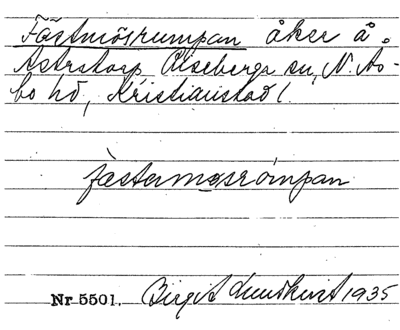 Fästmösrumpan åker å
Astrstorp Oiseberga sn, N. Ås-
bo hd, Kristianstad l.
fàstermosrómpan
Nr 5501. Birgit Lundkvist 1935